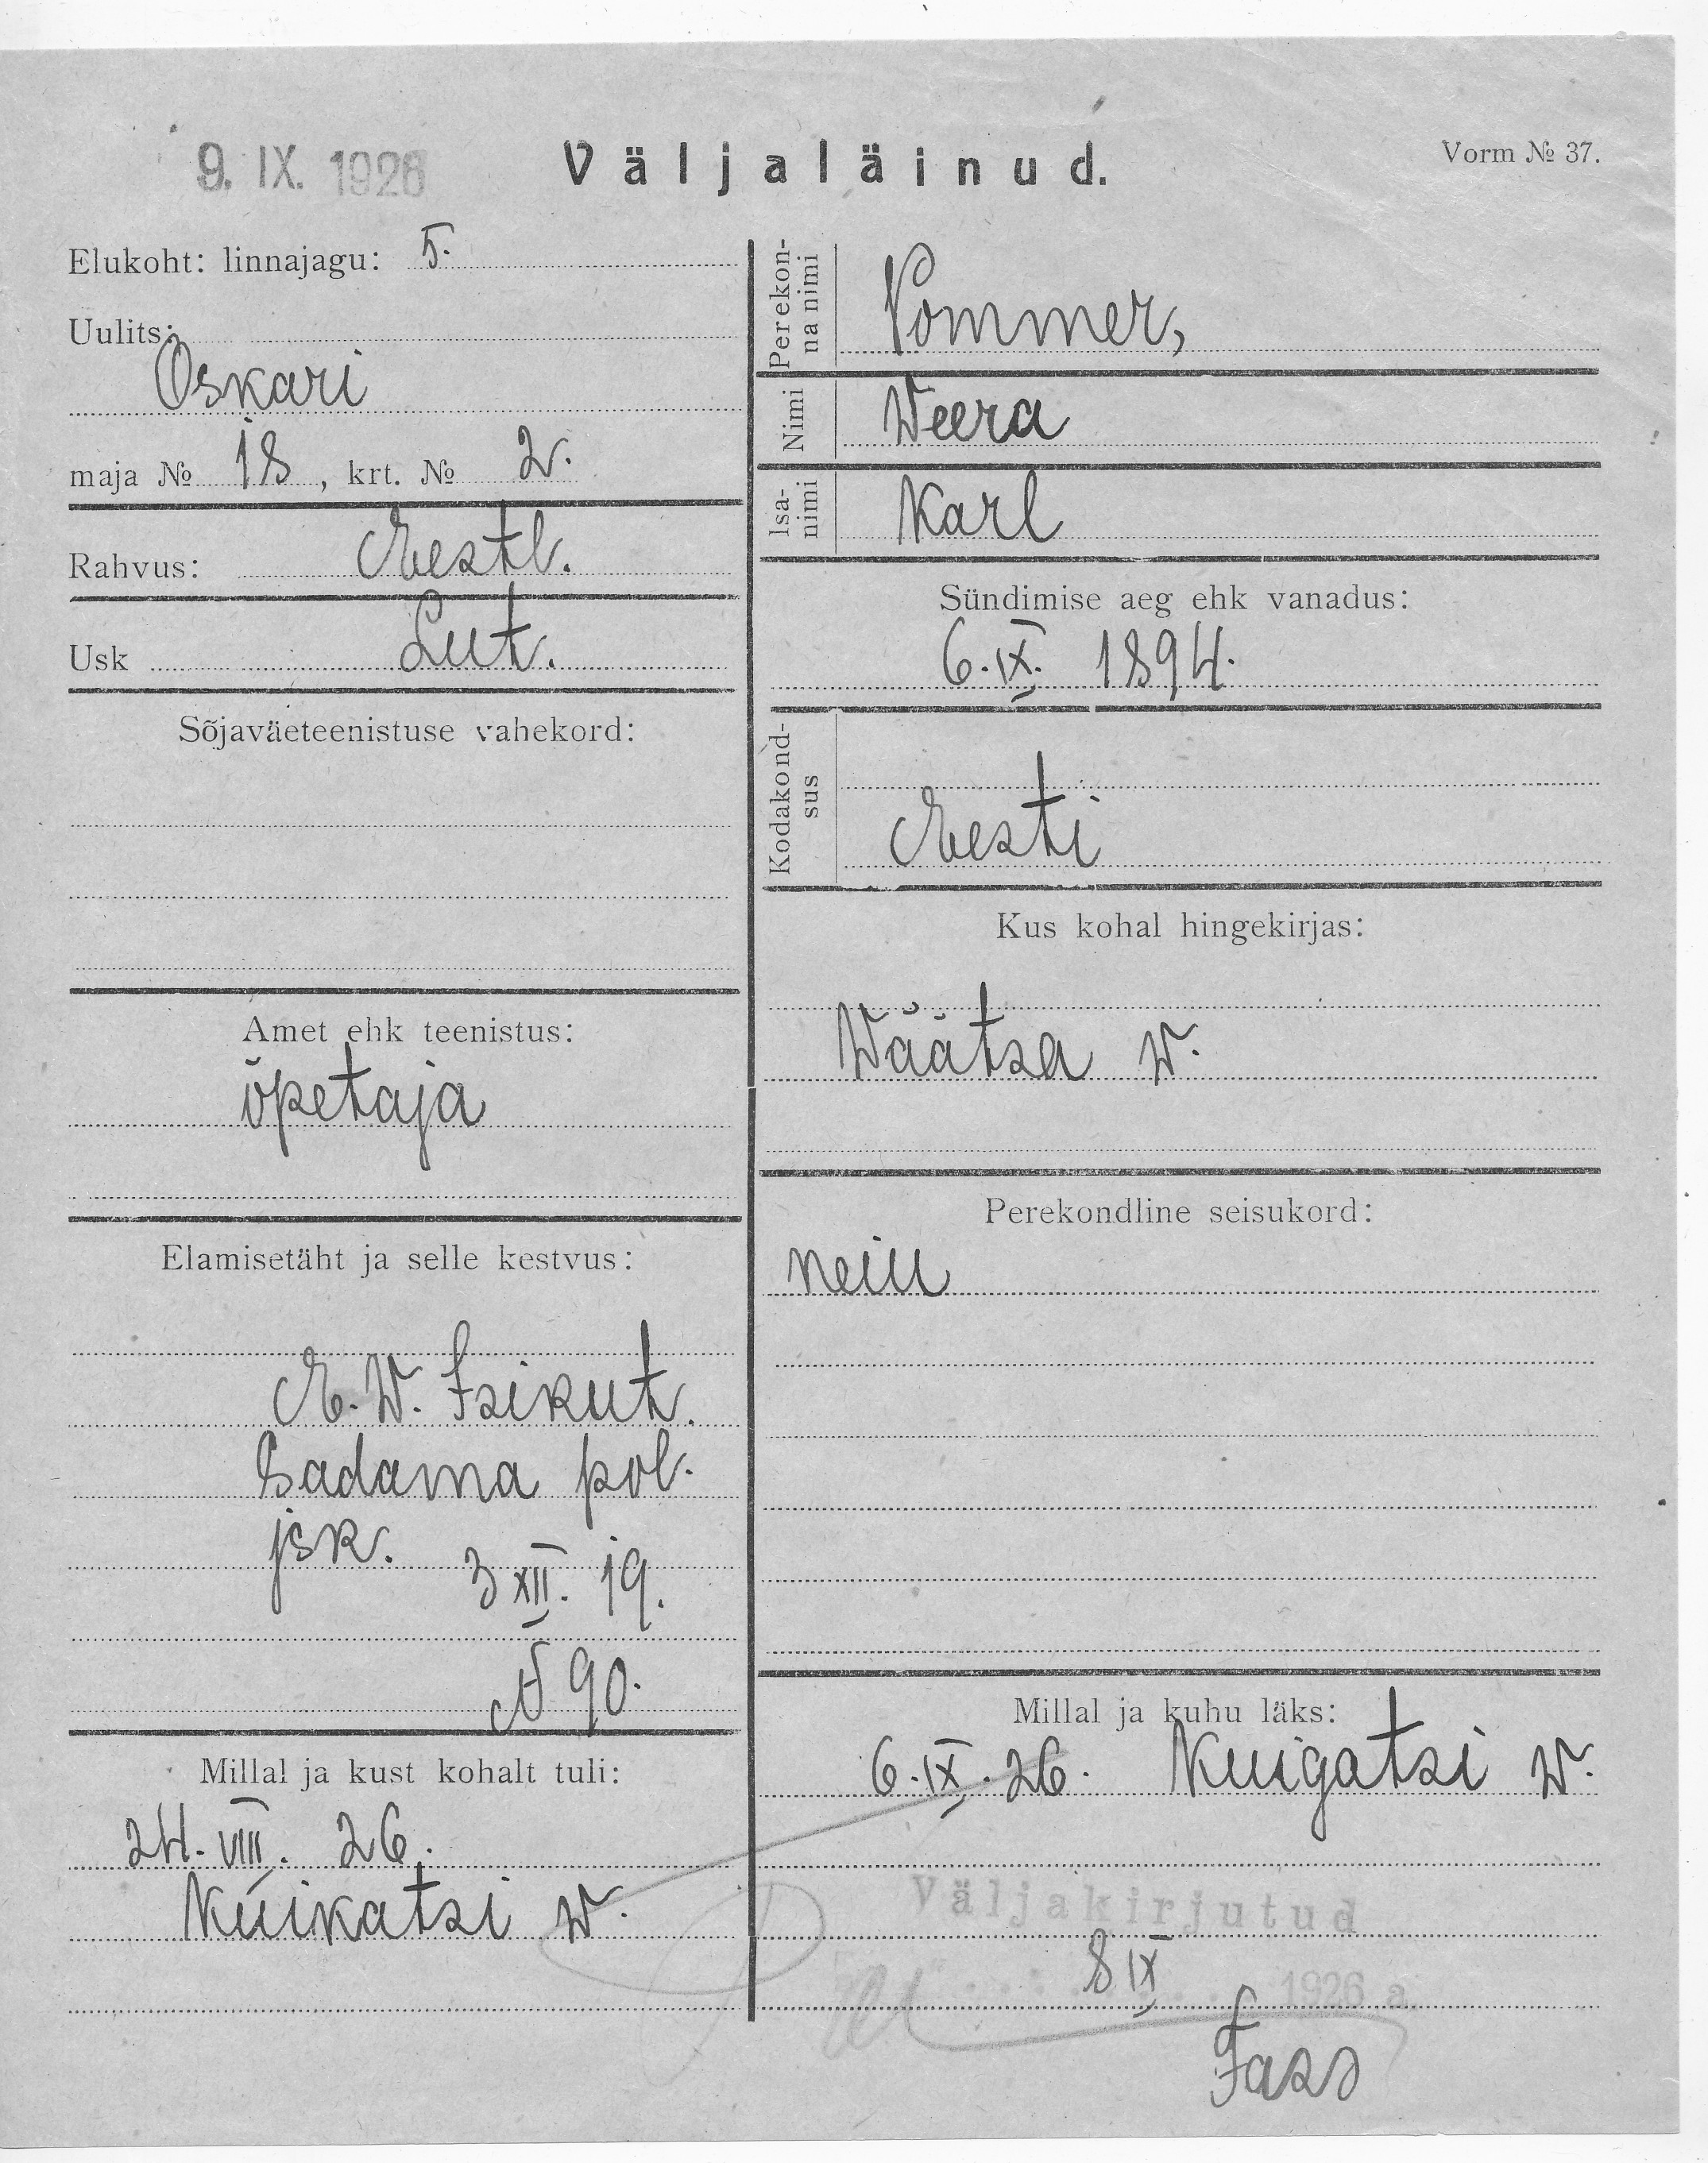 9. IX. 1926
Väljaläinud.
Vorm № 37.
Elukoht: linnajagu: 5.
Uulits:
Oskari
maja № 18, krt. № 2.
Rahvus: Eestl.
Usk Lut.
Sõjaväeteenistuse vahekord:
Amet ehk teenistus:
õpetaja
Elamisetäht ja selle kestvus:
E. W. Isikut.
Sadama pol.
jsk. 3 XII. 19.
№ 90.
Millal ja kust kohalt tuli:
24. VIII. 26.
Kuikatsi w.
Perekon-
na nimi
Pommer,
Nimi Weera
Isa-
nimi
Karl
Sündimise aeg ehk vanadus:
6. IX. 1894.
Kodakond-
sus
Eesti
Kus kohal hingekirjas:
Wäätsa w.
Perekondline seisukord:
neiu
Millal ja kuhu läks:
6. IX. 26. Kuigatsi w.
Väljakirjutud
8 IX 1926 a.